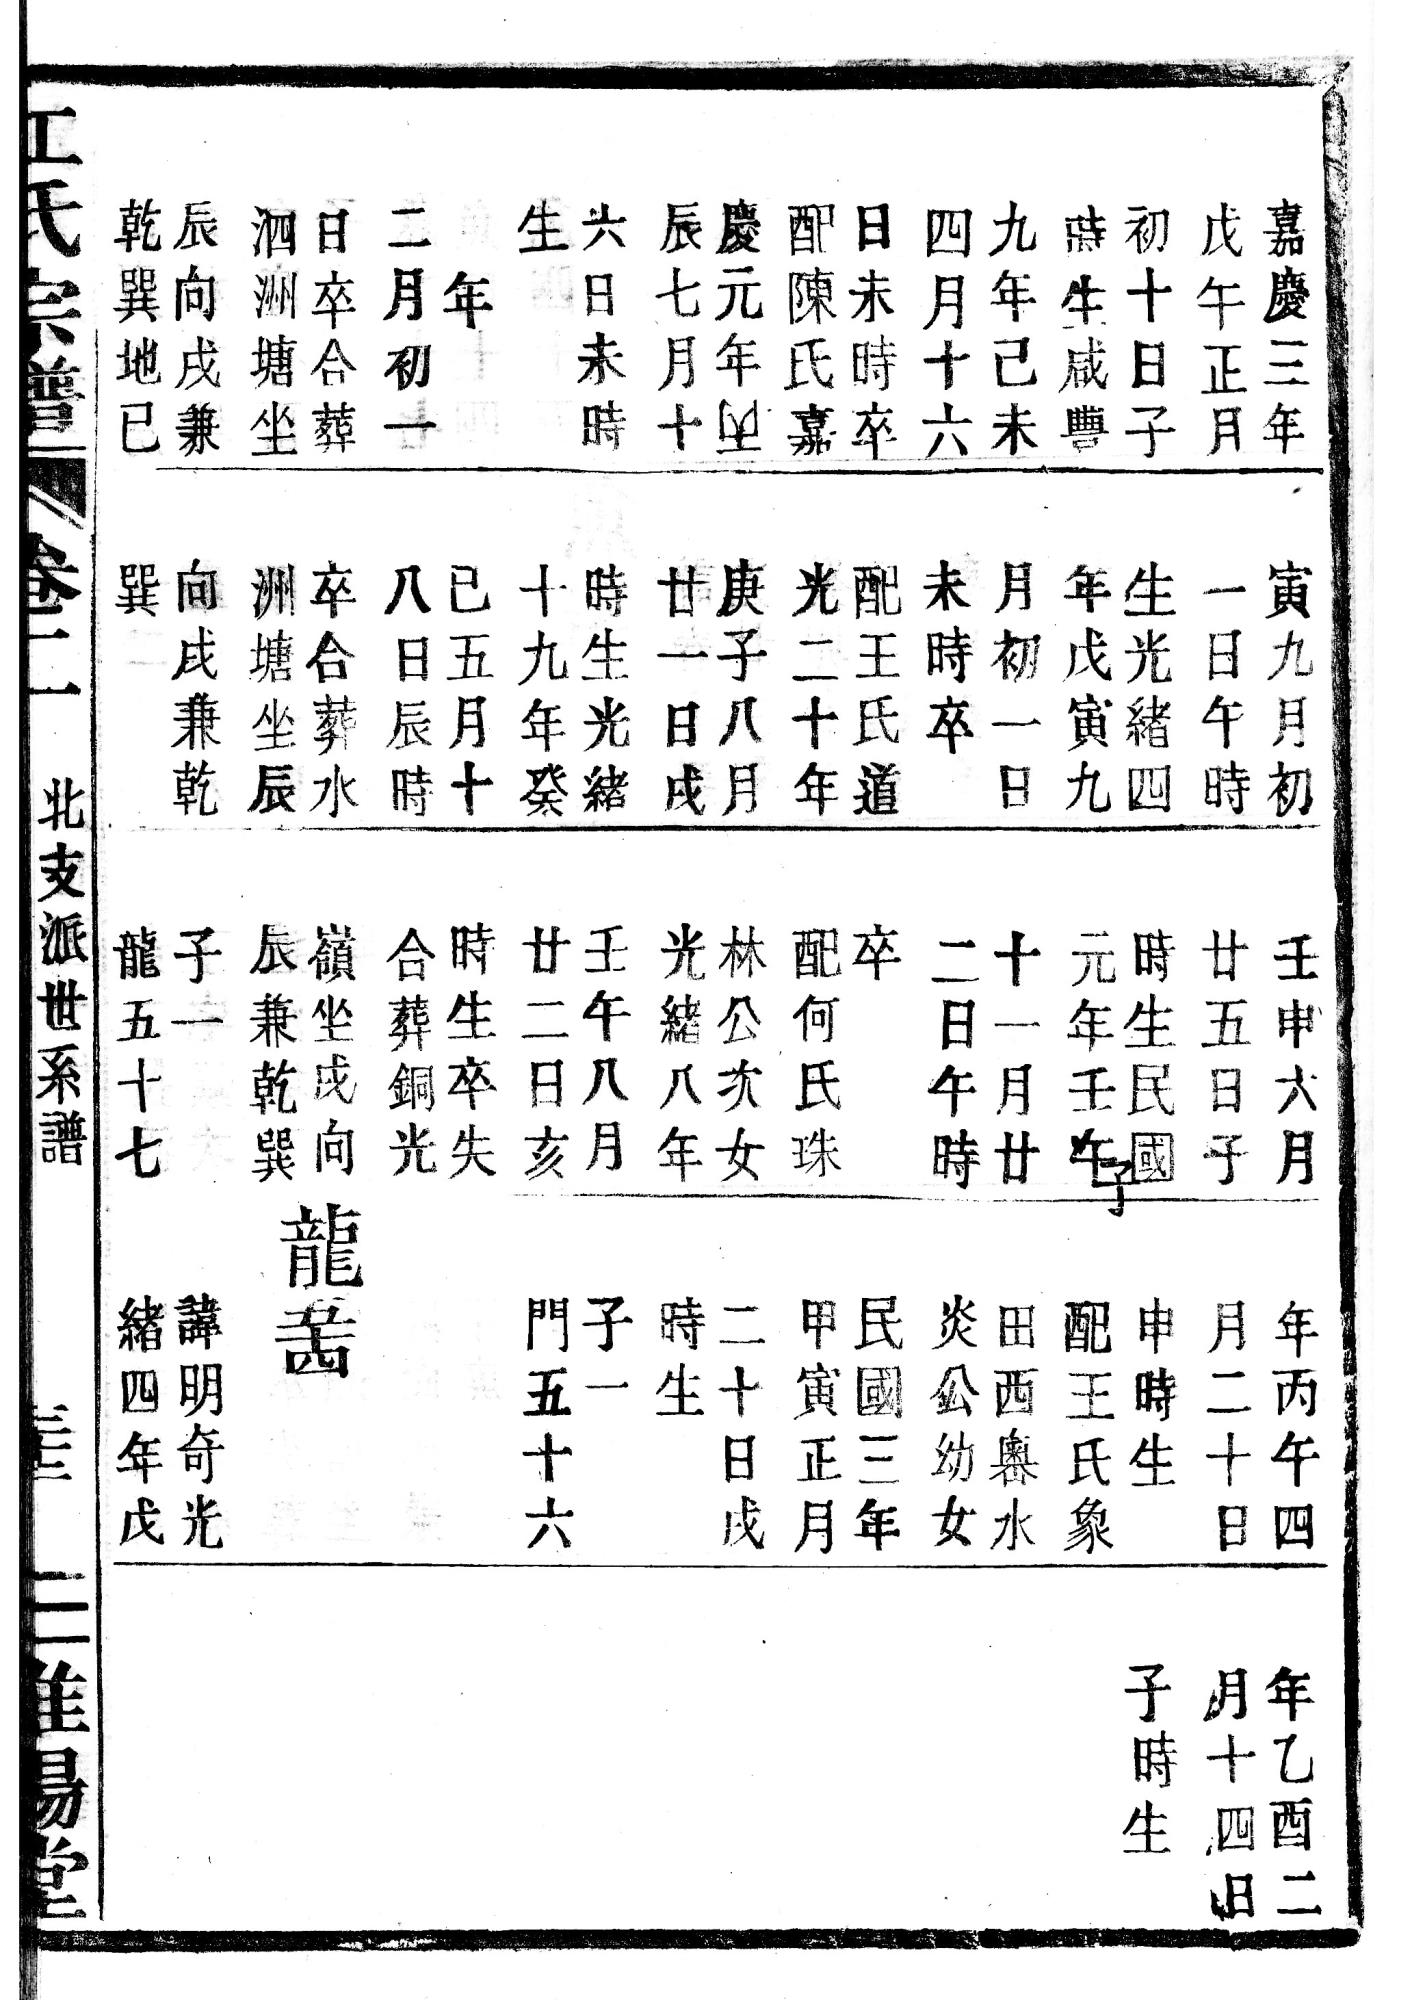 嘉慶三年
戊午正月
初十日子
時生咸豐
九年己未
四月十六
日未時卒
配陳氏嘉
慶元年丙
辰七月十
六日未時
生
年
二月初一
日卒合葬
泗洲塘坐
辰向戌兼
乾巽地已
寅九月初
一日午時
生光緒四
年戊寅九
月初一日
未時卒
配王氏道
光二十年
庚子八月
廿一日戌
時生光緒
十九年癸
巳五月十
八日辰時
卒合葬水
洲塘坐辰
向戌兼乾
巽
壬申六月
廿五日子
時生民國
元年壬午子
十一月廿
二日午時
卒
配何氏珠
林公次女
光緒八年
壬午八月
廿二日亥
時生卒失
合葬銅光
嶺坐戌向
辰兼乾巽
子一
龍五十七
年丙午四
月二十日
申時生
配王氏象
田西奧水
炎公幼女
民國三年
甲寅正月
二十日戌
時生
子一
門五十六
龍五十四
諱明奇光
緒四年戊
年乙酉二
月十四日
子時生
江氏宗譜
卷二
北支派世系譜
淮陽堂